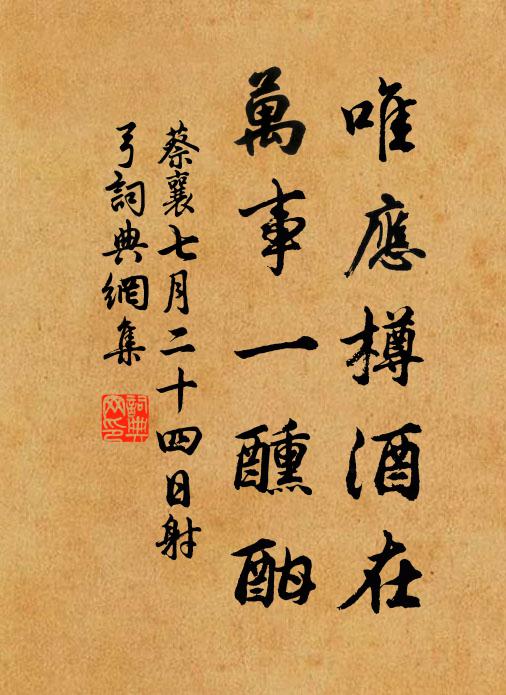 唯應樽酒在
萬事一醺酣
蔡襄七月二十四日射
弓詞典網集
詞典網印